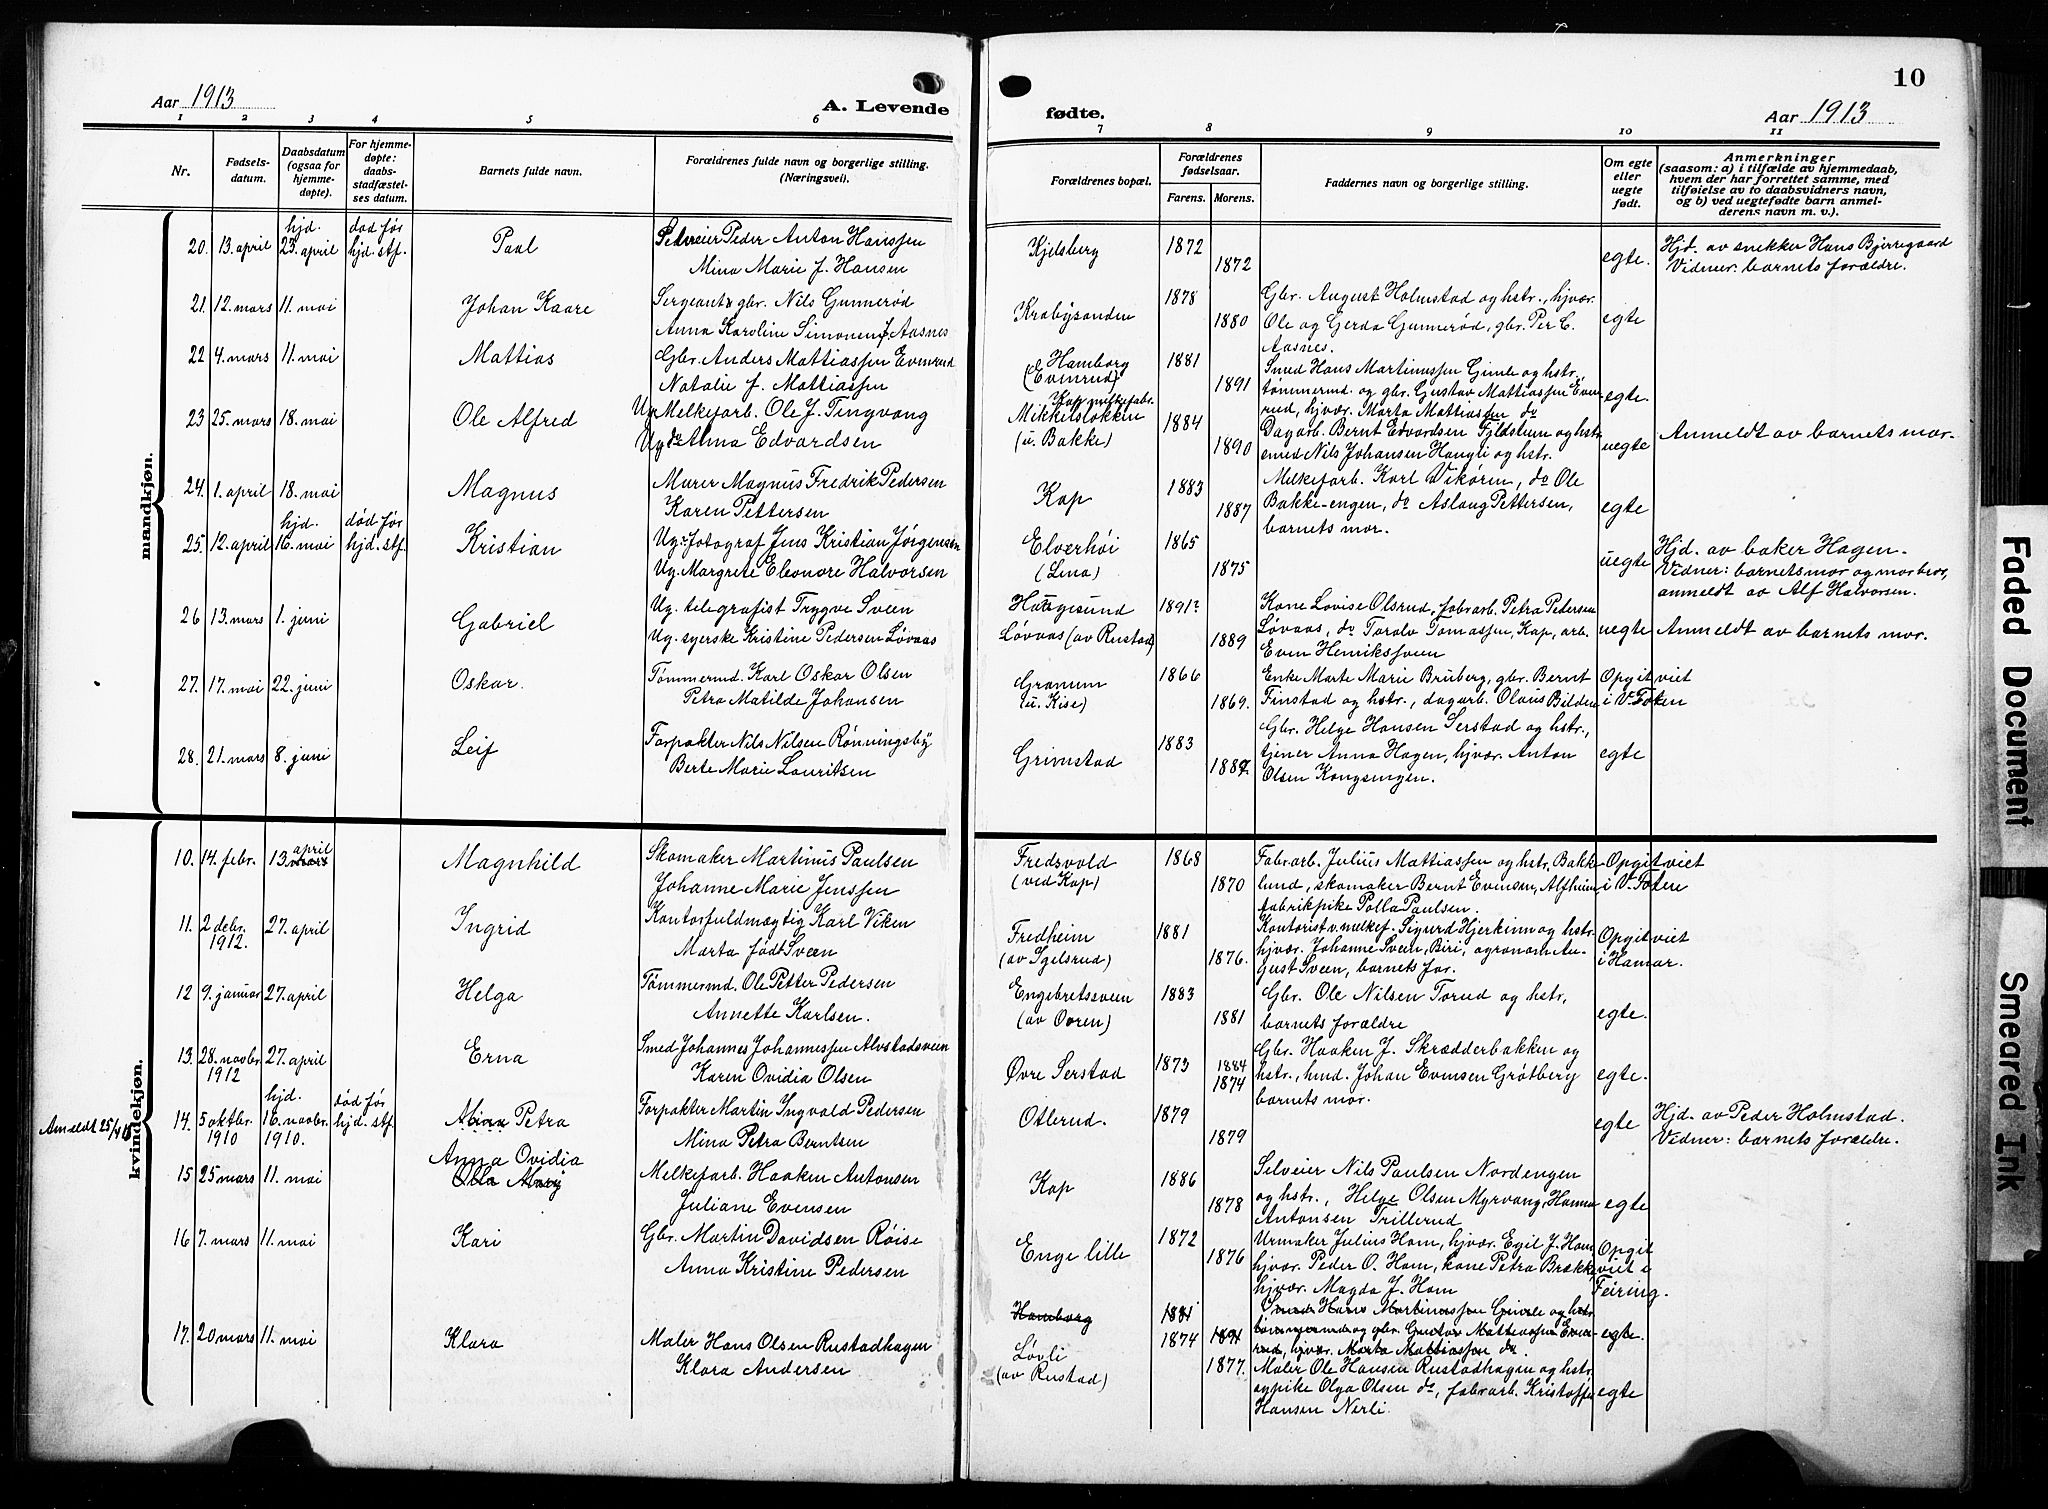 10
Aar 1913
A. Levende
fødte.
Aar 1913
1 2 3 4 5 6 7 8 9 10 11
Nr.
Fødsels-
datum.
Daabsdatum
(ogsaa for
hjemme-
døpte).
For hjemme-
døpte:
daabs-
stadfæstel-
ses datum.
Barnets fulde navn.
Forældrenes fulde navn og borgerlige stilling.
(Næringsvei).
Forældrenes bopæl.
Forældrenes
fødselsaar.
Farens. Morens.
Faddernes navn og borgerlige stilling.
Om egte
eller
uegte
født.
Anmerkninger
(saasom: a) i tilfælde av hjemmedaab,
hvem der har forrettet samme, med
tilføielse av to daabsvidners navn,
og b) ved uegtefødte barn anmel-
derens navn m. v.).
mandkjøn.
20. 13. april hjd. 23. april død før hjd. stf. Paul
Peder Anton Hanssen
Mina Marie f. Hansen
Kjelsberg 1872 1872 egte.
Hjd. av snekker Hans Bjerregaard
Vidner: barnets forældre.
21. 12. mars 11. mai Johan Kaare
Sergeant & gbr. Nils Gunnerød
Anna Karoline Simonsen f. Aasnes
Krabysanden 1878 1880
Gbr. August Holmstad og hstr., hjvær.
Ole og Gerda Gunnerød, gbr. Per C.
Aasnes.
egte
22 4. mars 11. mai Mattias
Gbr. Anders Mattiassen Evenrud
Natalie f. Mattiassen
Hamborg
(Evenrud)
1881 1891
Smed Hans Martinussen Gimle og hstr.,
tømmermd. og gbr. Gustav Mattiassen Even-
rud, hjvær. Marta Mattiassen do
egte.
23 25. mars 18. mai Ole Alfred
Ug. Melkefarb. Ole J. Tingvang
Ug. do Alma Edvardsen
Kap melkefabr.
Mikkelsløkken
(u. Bakke)
1884 1890
Dagarb. Bernt Edvardsen Fjldstuen og hstr
smed Nils Johansen Haugli og hstr.
uegte
Anmeldt av barnets mor.
24. 1. april 18. mai Magnus
Murer Magnus Fredrik Pedersen
Karen Pettersen
Kap 1883 1887
Melkefarb. Karl Vikøren, do Ole
Bakke-engen, do Aslaug Pettersen,
barnets mor.
egte
25. 12. april hjd. 16. mai død før hjd. stf. Kristian
Ug. Fotograf Jens Kristian Jørgensen
Ug. Margrete Eleonore Halvorsen
Elverhøi
(Lena)
1865 1875 uegte
Hjd. av baker Hagen.
Vidner: barnets mor og morbror,
anmeldt av Alf Halvorsen.
26 13. mars 1. juni Gabriel
Ug. telegrafist Trygve Sveen
Ug. syerske Kristine Pedersen Løvaas
Haugesund
Løvaas (av Rustad)
1891? 1889
Kone Lovise Olsrud, fabrarb. Petra Pedersen
Løvaas, do Torolv Tomassen, Kap, arb.
Even Henrikssveen
uegte
Anmeldt av barnets mor.
27. 17. mai 22. juni Oskar.
Tømmermd. Karl Oskar Olsen
Petra Matilde Johansen
Granum
(u. Kise)
1866 1869.
Enke Marte Marie Bruberg, gbr. Bernt
Finstad og hstr., dagarb. Olaus Bilden
Opgit viet
i V. Toten
28. 21. mars 8. juni Leif
Forpakter Nils Nilsen Rønningsby
Berte Marie Lauritsen
Grimstad 1883 1887.
Gbr. Helge Hansen Serstad og hstr.,
tjener Anna Hagen, hjvær. Anton
Olsen Kongsengen.
egte
kvindekjøn.
10. 14. febr. 13. april mars Magnhild
Skomaker Martinus Paulsen
Johanne Marie Jenssen
Fredsvold
(ved Kap)
1868 1870
Fabrarb. Julius Mattiassen og hstr. Bakk-
lund, skomaker Bernt Evensen, Alfheim
fabrikpike Polla Paulsen.
Opgit viet
i V. Toten
11. 2 debr. 1912. 27. april Ingrid
Kontorfuldmægtig Karl Viken
Marta født Sveen
Fredheim
(av Sgelsrud)
1881 1876.
Kontorist v. melkef. Sigurd Hjerkinn og hstr
hjvær. Johanne Sveen, Biri, agronom Au-
gust Sveen, barnets far.
Opgit viet
i Hamar.
12 9. januar 27. april Helga
Tømmermd. Ole Petter Pedersen
Annette Karlsen.
Engebretssveen
(av Ovren)
1883 1881
Gbr. Ole Nilsen Torud og hstr,
barnets forældre
egte.
13. 28. novbr. 1912 27. april Erna
Smed Johannes Johannessen Alvstadsveen
Karen Ovidia Olsen
Øvre Serstad 1873 1884 1874
Gbr. Haaken J. Skrædderbakken og
hstr., hmd. Johan Evensen Grøtberg
barnets mor.
egte.
Anmeldt 25/4 13
14. 5 oktbr. 1910 hjd. 16. novbr. 1910. død før hjd. stf. Petra
Forpakter Martin Ingvald Pedersen
Mina Petra Berntsen
Otlerud. 1879 1879 egte
Hjd. av Peder Holmstad.
Vidner: barnets forældre.
15 25 mars 11. mai Anna Ovidia
Melkefarb. Haaken Antonsen
Juliane Evensen
Kap 1886 1878
Selveier Nils Paulsen Nordengen
og hstr., Helge Olsen Myrvang, Hanna
Antonsen Trillerud
egte
16 7. mars 11. mai Kari
Gbr. Martin Davidsen Røise
Anna Kristine Pedersen
Enge lille 1872 1876
Urmaker Julius Hom, hjvær. Egil J. Hom
hjvær. Peder O. Hom, kone Petra Brække
hjvær. Magda J. Hom
Opgit
viet i
Feiring.
17. 20 mars 11. mai Klara
Maler Hans Olsen Rustadhagen
Klara Andersen
Hamborg
Løvli
(av Rustad)
1881 1874 1891 1877.
Smed Hans Martinussen Gimle og hstr
tømmermd og gbr. Gustav Mattiassen Even-
rud, hjvær. Marta Mattiassen do.
Maler Ole Hansen Rustadhagen og hstr
sypike Olga Olsen do, fabrarb. Kristoffer
Hansen Nerli.
egte.
egte
Faded Document
Smeared Ink